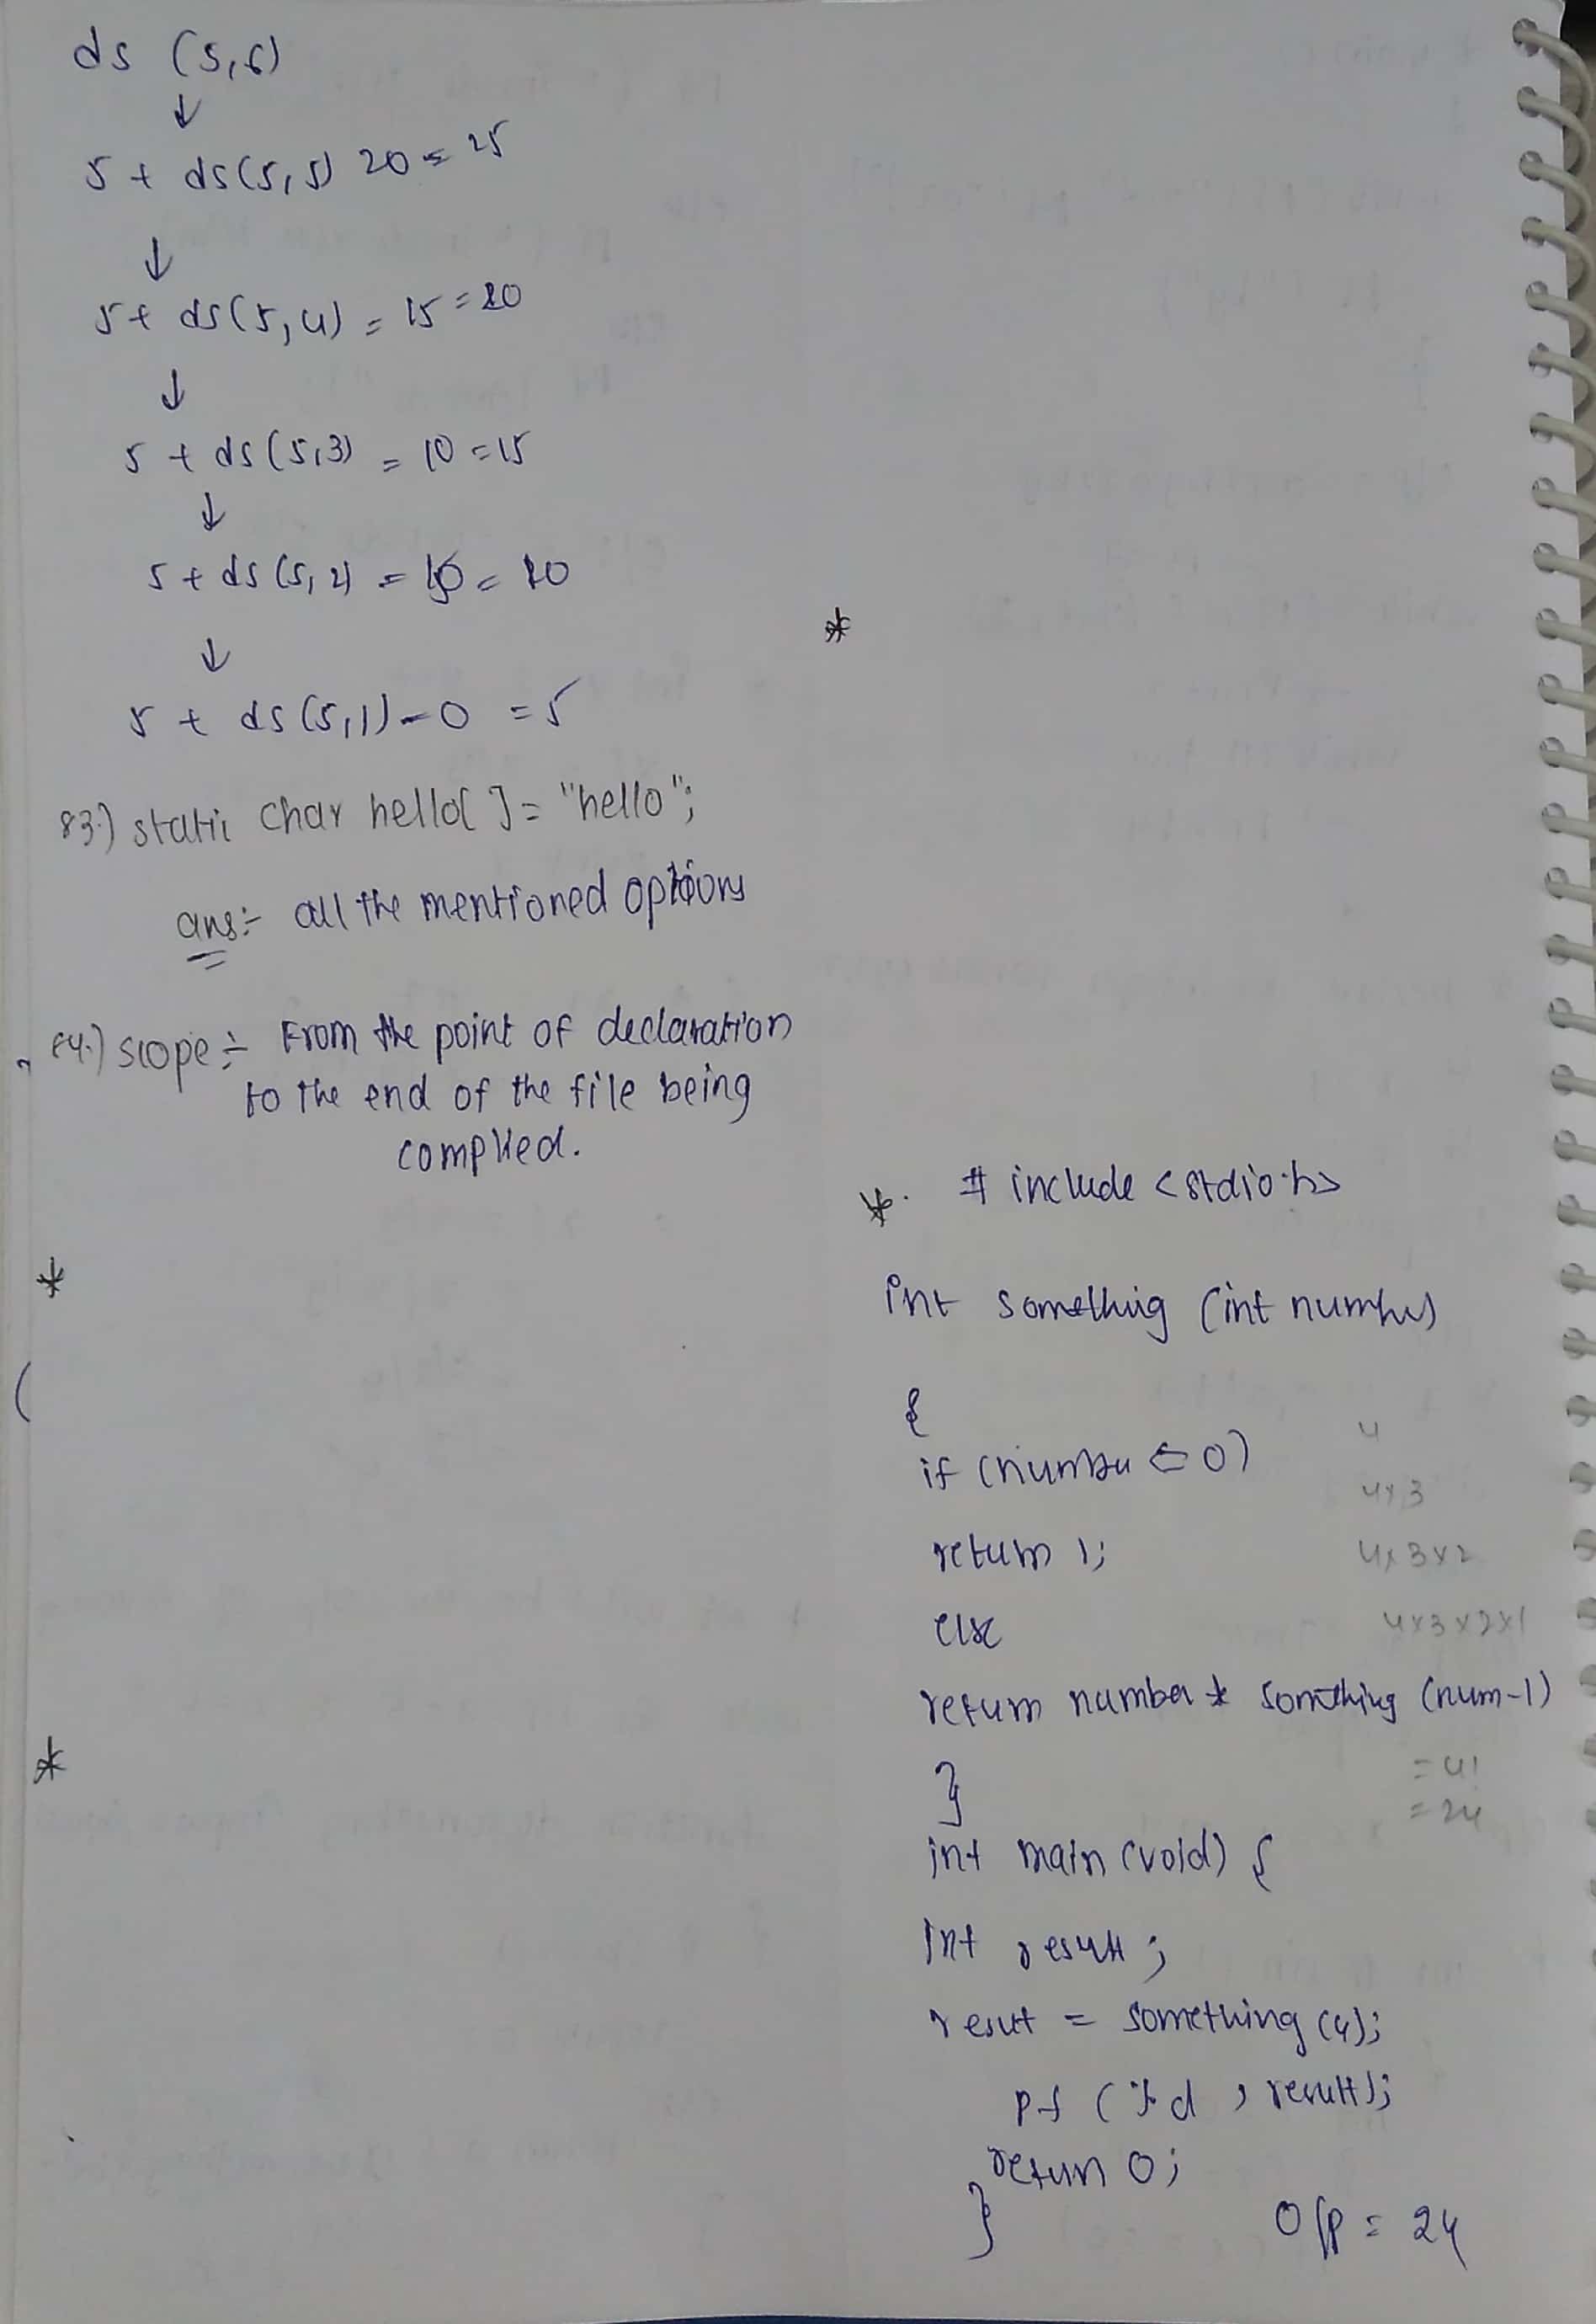 ds (5,6)
↓
5 + ds(5,5) 20 = 25
↓
5+ ds(5,4) = 15 = 20
↓
5 + ds(5,3) = 10 = 15
↓
5 + ds(5,2) = = 10
↓
5 + ds(5,1) - 0 = 5
83.) static char hello[ ] = "hello";
ans:- all the mentioned options
84.) scope:- From the point of declaration
to the end of the file being
complied.
*
(
*
*
*. # include <stdio.h>
int something (int number)
{
if (number <= 0)
4
4x3
return 1;
4x3x2
else
4x3x2x1
return number * something (num-1)
}
= 4!
= 24
int main (void) {
int result ;
result = something (4);
pf (%d , result);
return 0;
}
O/p = 24